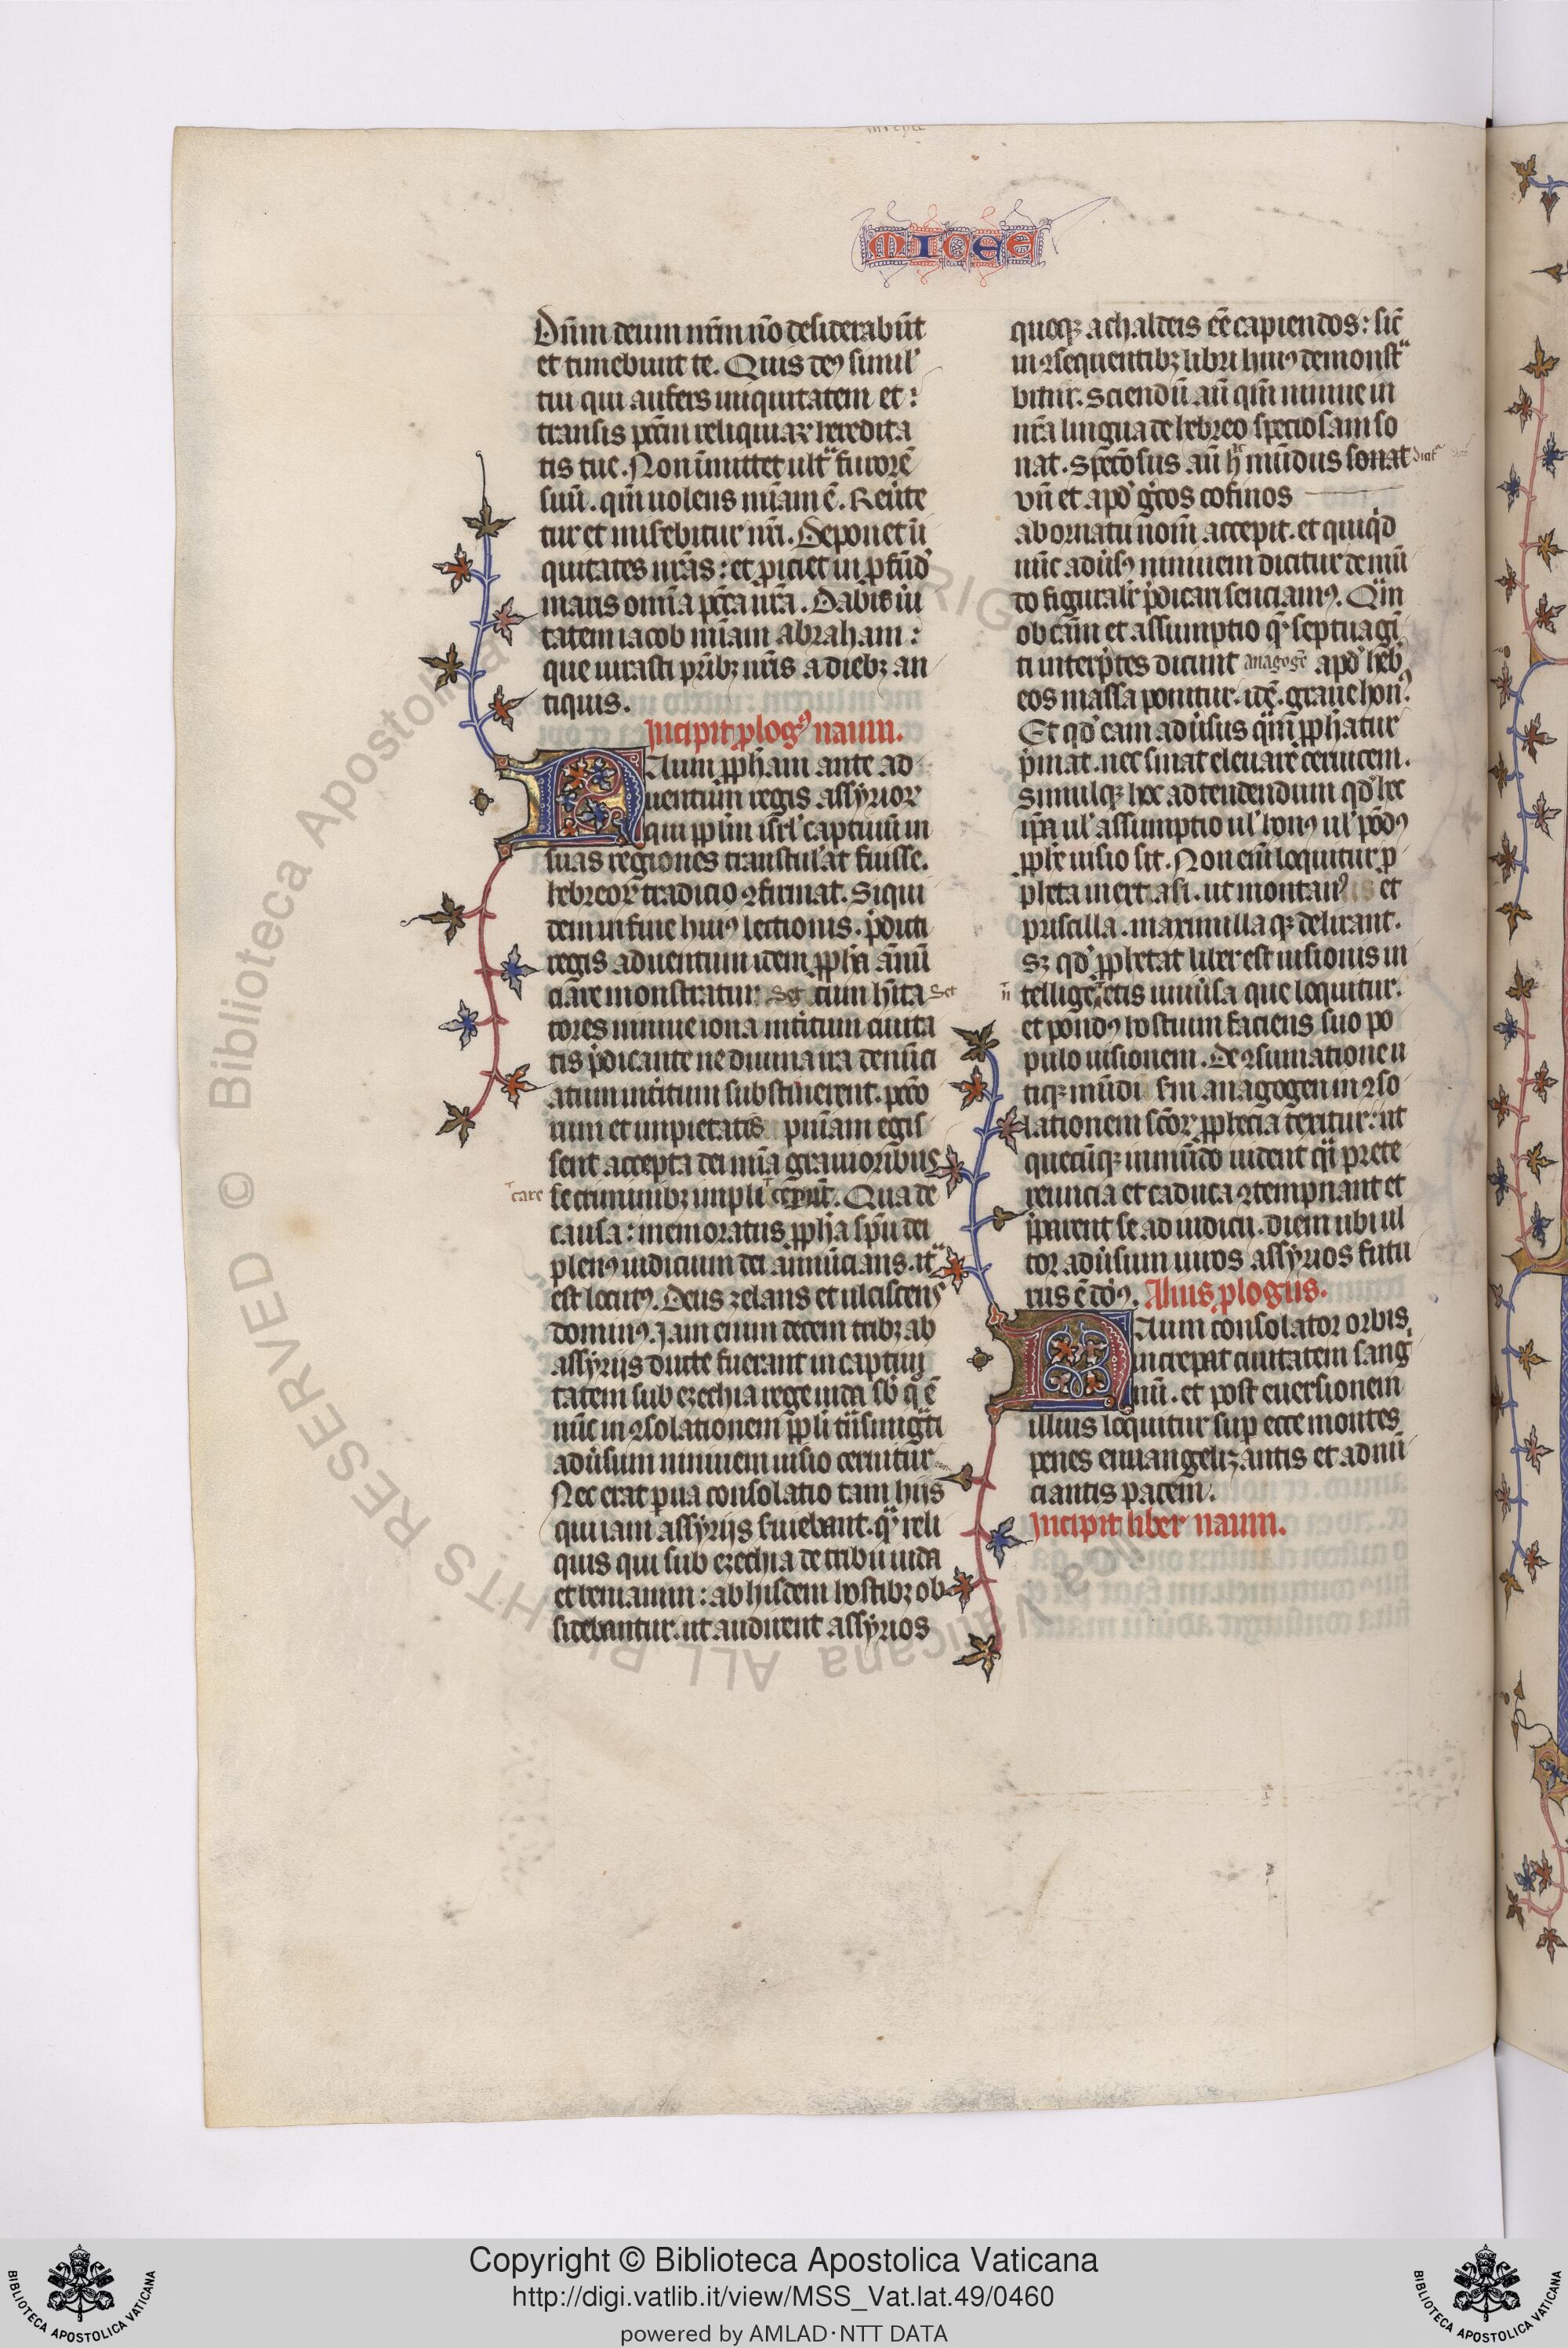 MICEE
Dn̄m deum nr̄m n̄o desiderabūt
et timebunt te. Quis deꝰ simil'
tui qui aufers iniquitatem et :
transis pcc̄m reliquiaꝝ heredita
tis tue. Non īmittet ultᵃ furorē
suū. qm̄ uolens mīam ē. Reu̾te
tur et misebitur nr̄i. Deponet ī
quitates nr̄as : et ꝓiciet in ꝓfūd'
maris omīa pcc̄a nr̄a. Dabis ūi
tatem iacob mīam abraham :
que iurasti pr̄ibꝫ nr̄is a diebꝫ an
tiquis.
Incipit ꝓlogꝰ naum.
Naum ꝓph̄am ante ad
uentum regis assyrioꝝ
qui ppl̄m isr̄l' captiuū in
suas regiones transtulat fuisse.
hebreoꝝ tradicio ꝯfirmat. Siqui
dem in fine huiꝰ lectionis. p̄dicti
regis aduentum idem ꝓph̄a ānū
ciare monstratur. Set cum hīta Set
tores niniue iona īnteritum ciuita
tis p̄dicante ne diuina ira denūci
atum interitum substinerent. pcc̄o
rum et impietatis pnīam egis
sent accepta dei mīa grauioribus
care se criminibꝫ impli cexūt. Qua de
causa : memoratus ꝓph̄a sp̄u dei
plenꝰ iudicium dei annūcians. itᵃ
est locutꝰ. Deus zelans et ulciscens
dominꝰ. Jam enim decem tribꝫ ab
assyrijs ducte fuerant in captiui
tatem sub ezechia rege iuda sb' q̄ ē
nūc in ꝯsolationem ppl̄i tn̄smigᵃti
adu̾sum niniuem uisio cernitur
Nec erat pua consolatio tam hijs
qui iam assyrijs suiebant. qᵃ reli
quis qui sub ezechia de tribu iuda
et beniamin : ab hisdem hostibꝫ ob
sidebantur. ut audirent assyrios
quoqꝫ a chaldeis eē capiendos : sic̄
in ꝯsequentibꝫ libri huiꝰ demonstᵃ
bitur. Sciendū aū qm̄ niniue in
nr̄a lingua de hebreo speciosam so
nat. Specōsus aū hᶜ mūdus sonat
vn̄ et apd' gᵉcos cosmos
ab ornatu nom̄ accepit. et quiqᵈ
nūc adu̾sꝰ niniuem dicitur de mū
do figuralr̄ p̄dicari senciamꝰ. Qm̄
ob cām et assumptio qᵃ septuagī
ti interp̄tes dicunt anagoge apd' heb̾
eos massa ponitur. idē. graue honꝰ.
Et qd' eam adu̾sus qm̄ ꝓph̄atur
p̄mat. nec sinat eleuare ceruicem.
Simulqꝫ hoc adtendendum qd' hec
ip̄a ul' assumptio ul' honꝰ ul' pōdꝰ
ꝓphe uisio sit. Non enī loquitur ꝓ
pheta in ext asi. ut montanꝰ et
priscilla. maximilla qꝫ delirant.
Sꝫ qd' ꝓphetat liber est uisionis in
tellige etis uniu̾sa que loquitur.
et pondꝰ hostium faciens suo po
pulo uisionem. De ꝯsumatione u
tiqꝫ mūdi scd̄m anagogen in ꝯso
lationem scōꝝ ꝓphecia texitur : ut
quecūqꝫ in mūdo uident qᵃ prete
reuncia et caduca ꝯtempnant et
p̄parent se ad iudicii. diem ubi ul
tor adu̾sum uiros assyrios futu
rus ē dōꝰ. Alius ꝓlogus.
Naum consolator orbis.
increpat ciuitatem sang'
nū. et post euersionem
illius loquitur sup ecce montes
penes euuangelizantis et adnū
ciantis pacem.
Incipit liber naum.
© Biblioteca Apostolica Vaticana ALL RIGHTS RESERVED
Copyright © Biblioteca Apostolica Vaticana
http://digi.vatlib.it/view/MSS_Vat.lat.49/0460
powered by AMLAD·NTT DATA
BIBLIOTECA APOSTOLICA VATICANA
BIBLIOTECA APOSTOLICA VATICANA